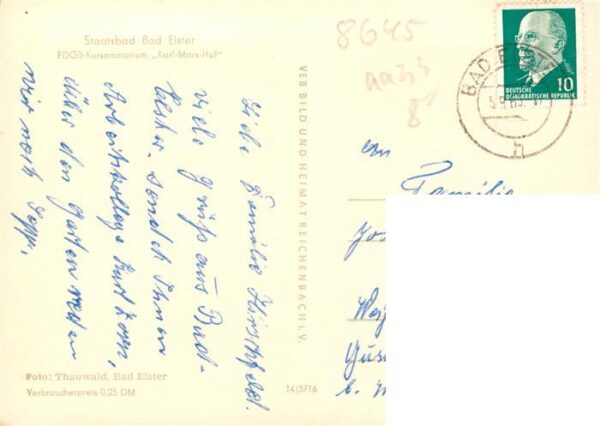 Staatsbad Bad Elster
FDGB-Kursanatorium „Karl-Marx-Hof"
8645
Liebe Familie Hirschfeld.
viele Grüße aus Bad-
Elster. sendet Ihnen
Arbeitskollege Kurt
Über den Garten reden
wir noch
Foto: Thauwald, Bad Elster
Verbraucherpreis 0,25 DM
14/3716
VEB BILD UND HEIMAT REICHENBACH I. V.
BAD
DEUTSCHE
DEMOKRATISCHE REPUBLIK
10
h
an
Familie